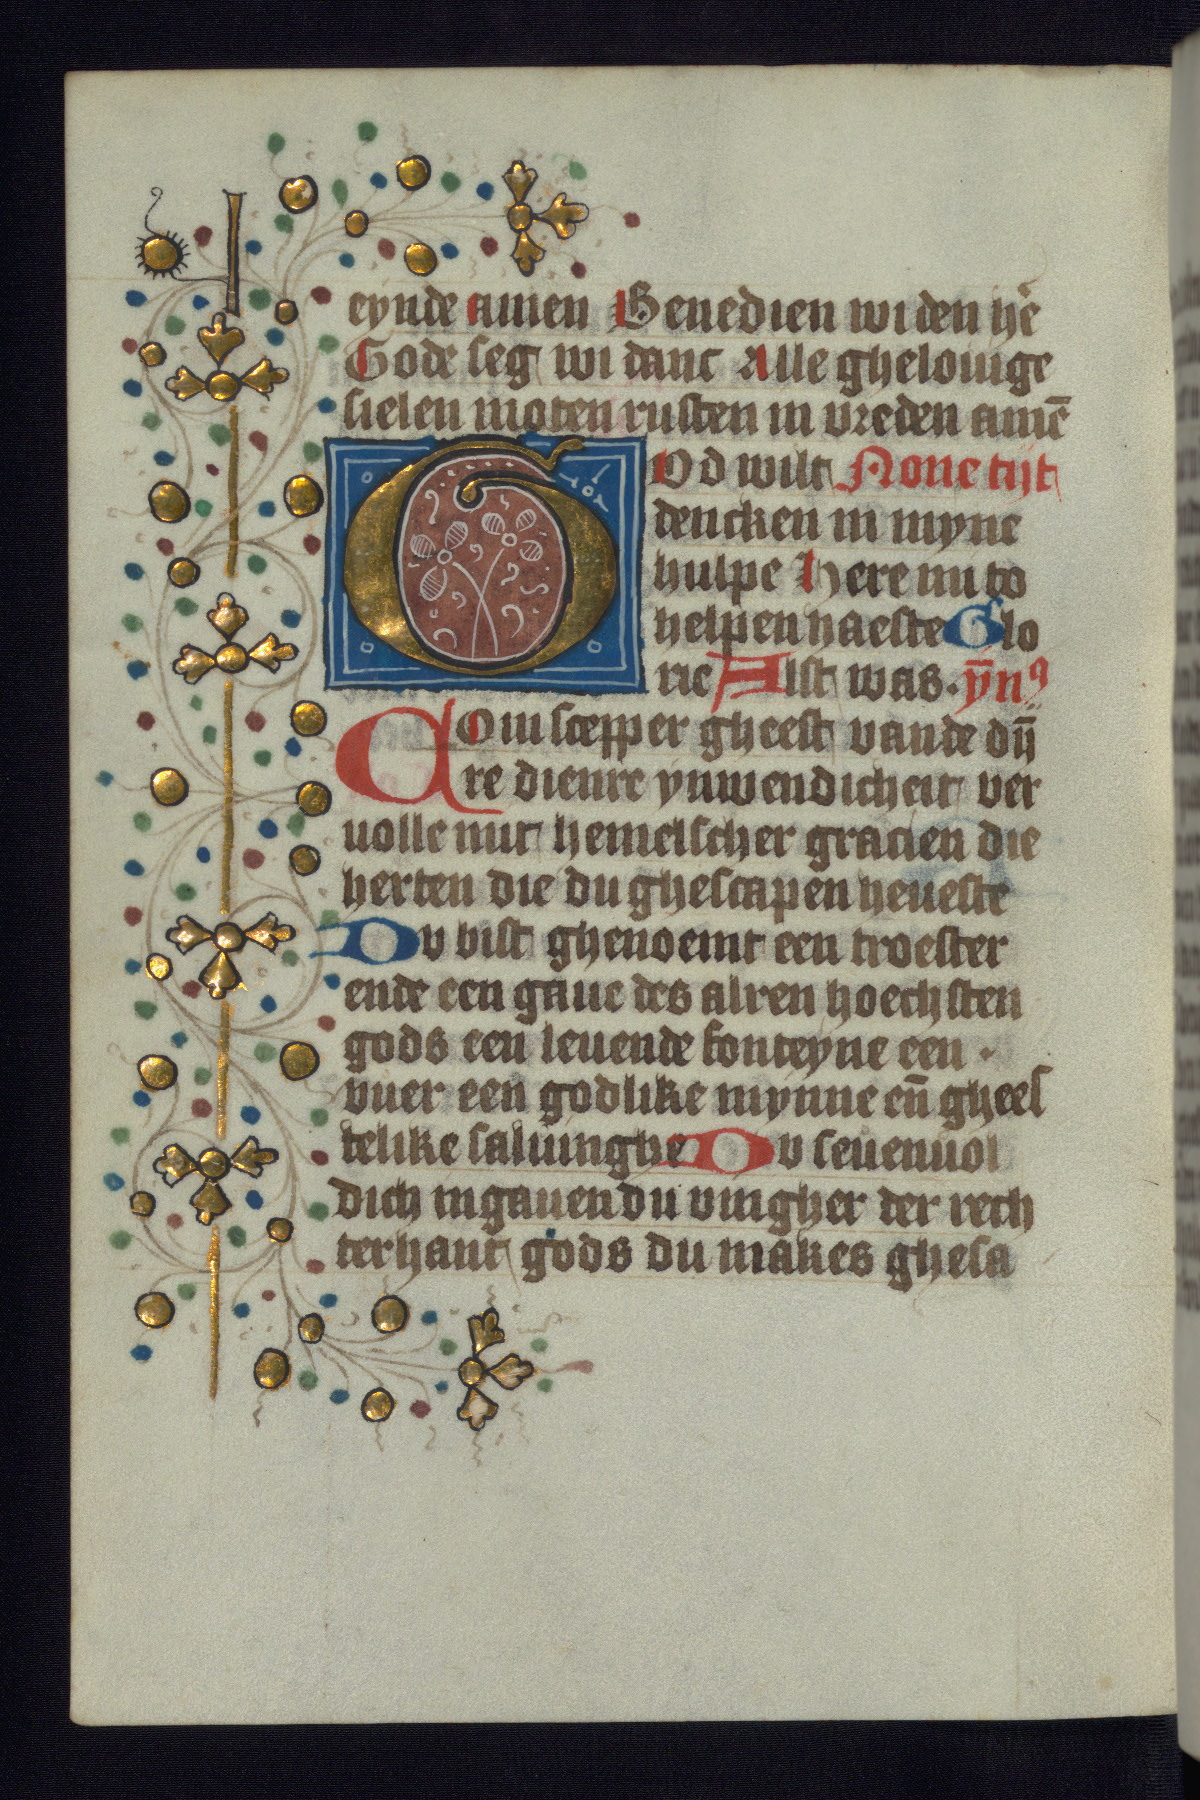 eynde amen Benedien wi den hē
Gode seg wi danc Alle ghelouige
sielen moten rusten in vreden amē
GOd wilt None tijt
dencken in myne
hulpe Here nu to
helpen haeste Glo
rie Alst was. ȳnꝰ
COm scepper gheest vande dīj
re dienre ynwendicheit ver
uolle mit hemelscher gracien die
herten die du ghescapen heueste
Du bist ghenoemt een troester
ende een gaue des alren hoechsten
gods een leuende fonteyne een .
vuer een godlike mynne en̄ ghees
telike saluinghe Du seuenuol
dich in gauen du vingher der rech
terhant gods du makes ghesa